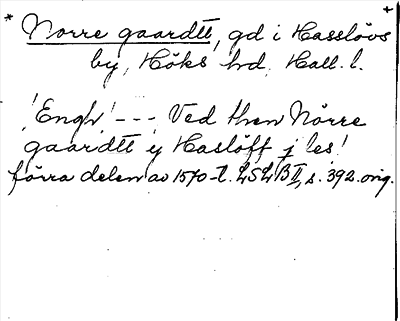 * Norre gaardtt, gd i Hasslövs +
by, Höks hd, Hall. l.
'Engh' --- Ved then Nörre
gaardtt ij Haslöff j les!
förra delen av 1570-t. LSLB II, s. 392. orig.